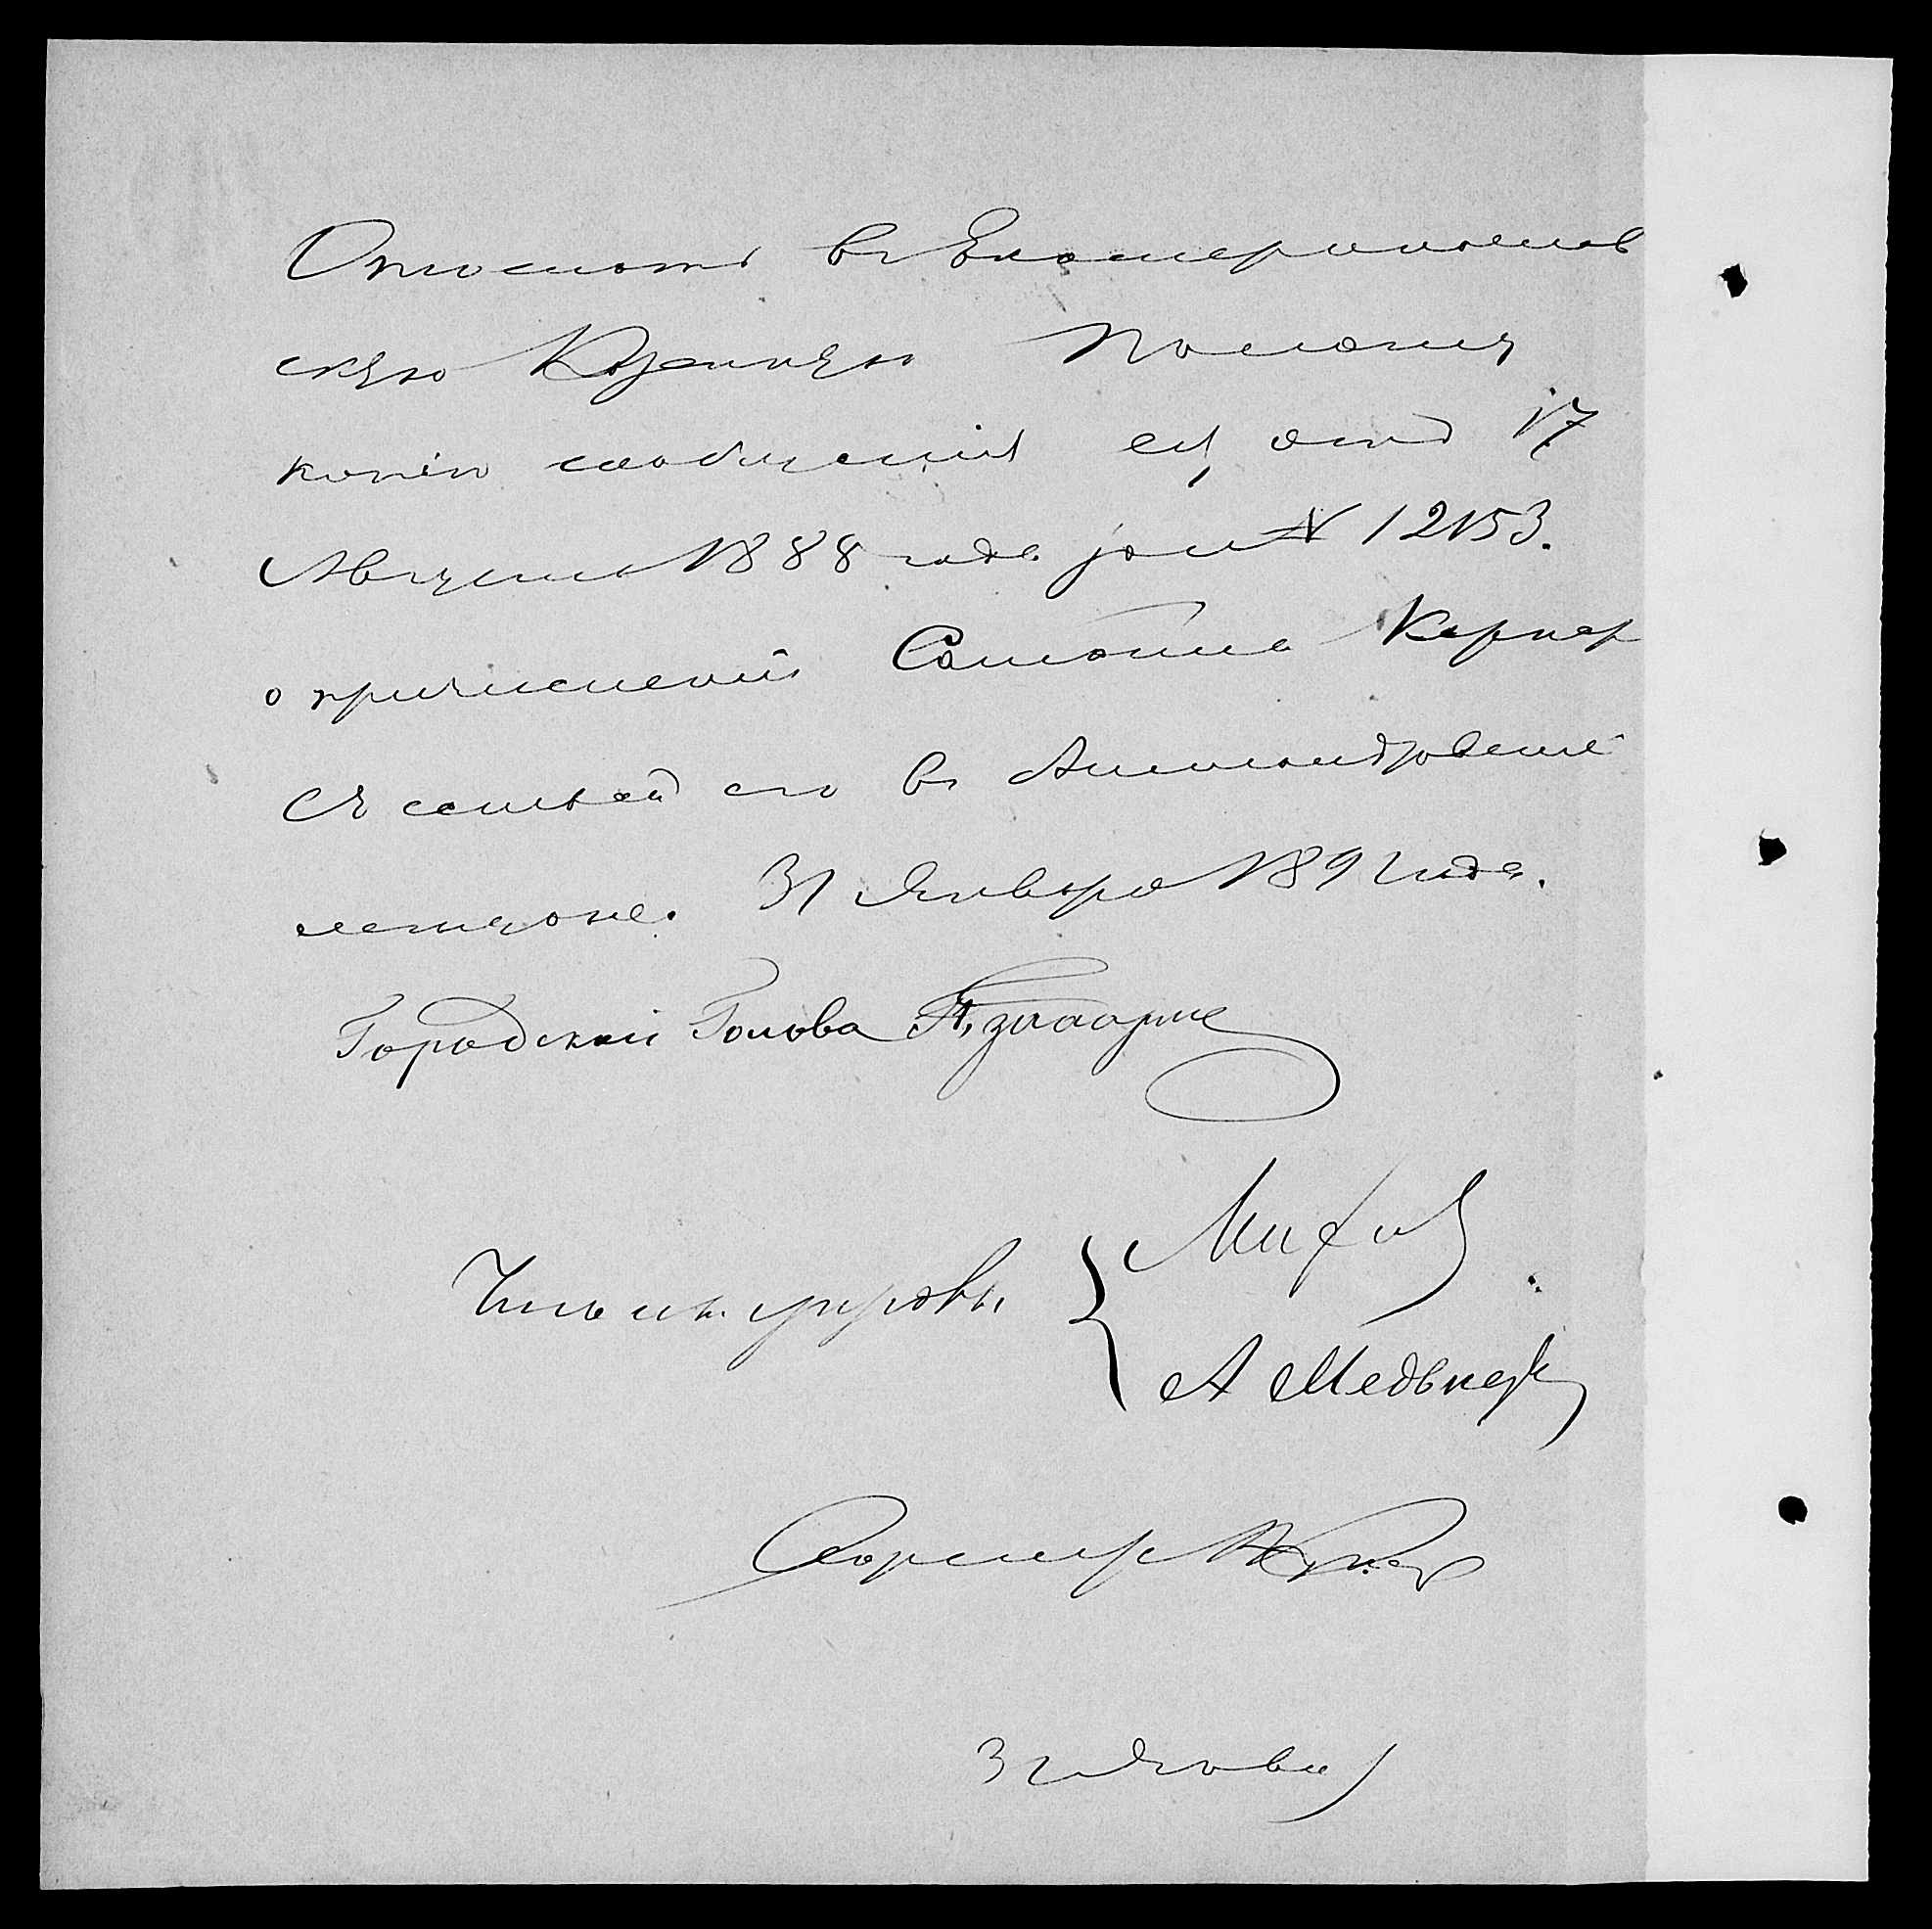 Отослать въ Екатеринослав
скую Казенную Палату
копію сообщенія ея, отъ 17
Августа 1888 года за № 12153.
о причисленіи Соломона Кернер
съ семьей его въ Александровскіе
мещане. 31 Января 1891 года.
Городской Голова
Члены управы
А Медвѣ
Секретарь
31 Января